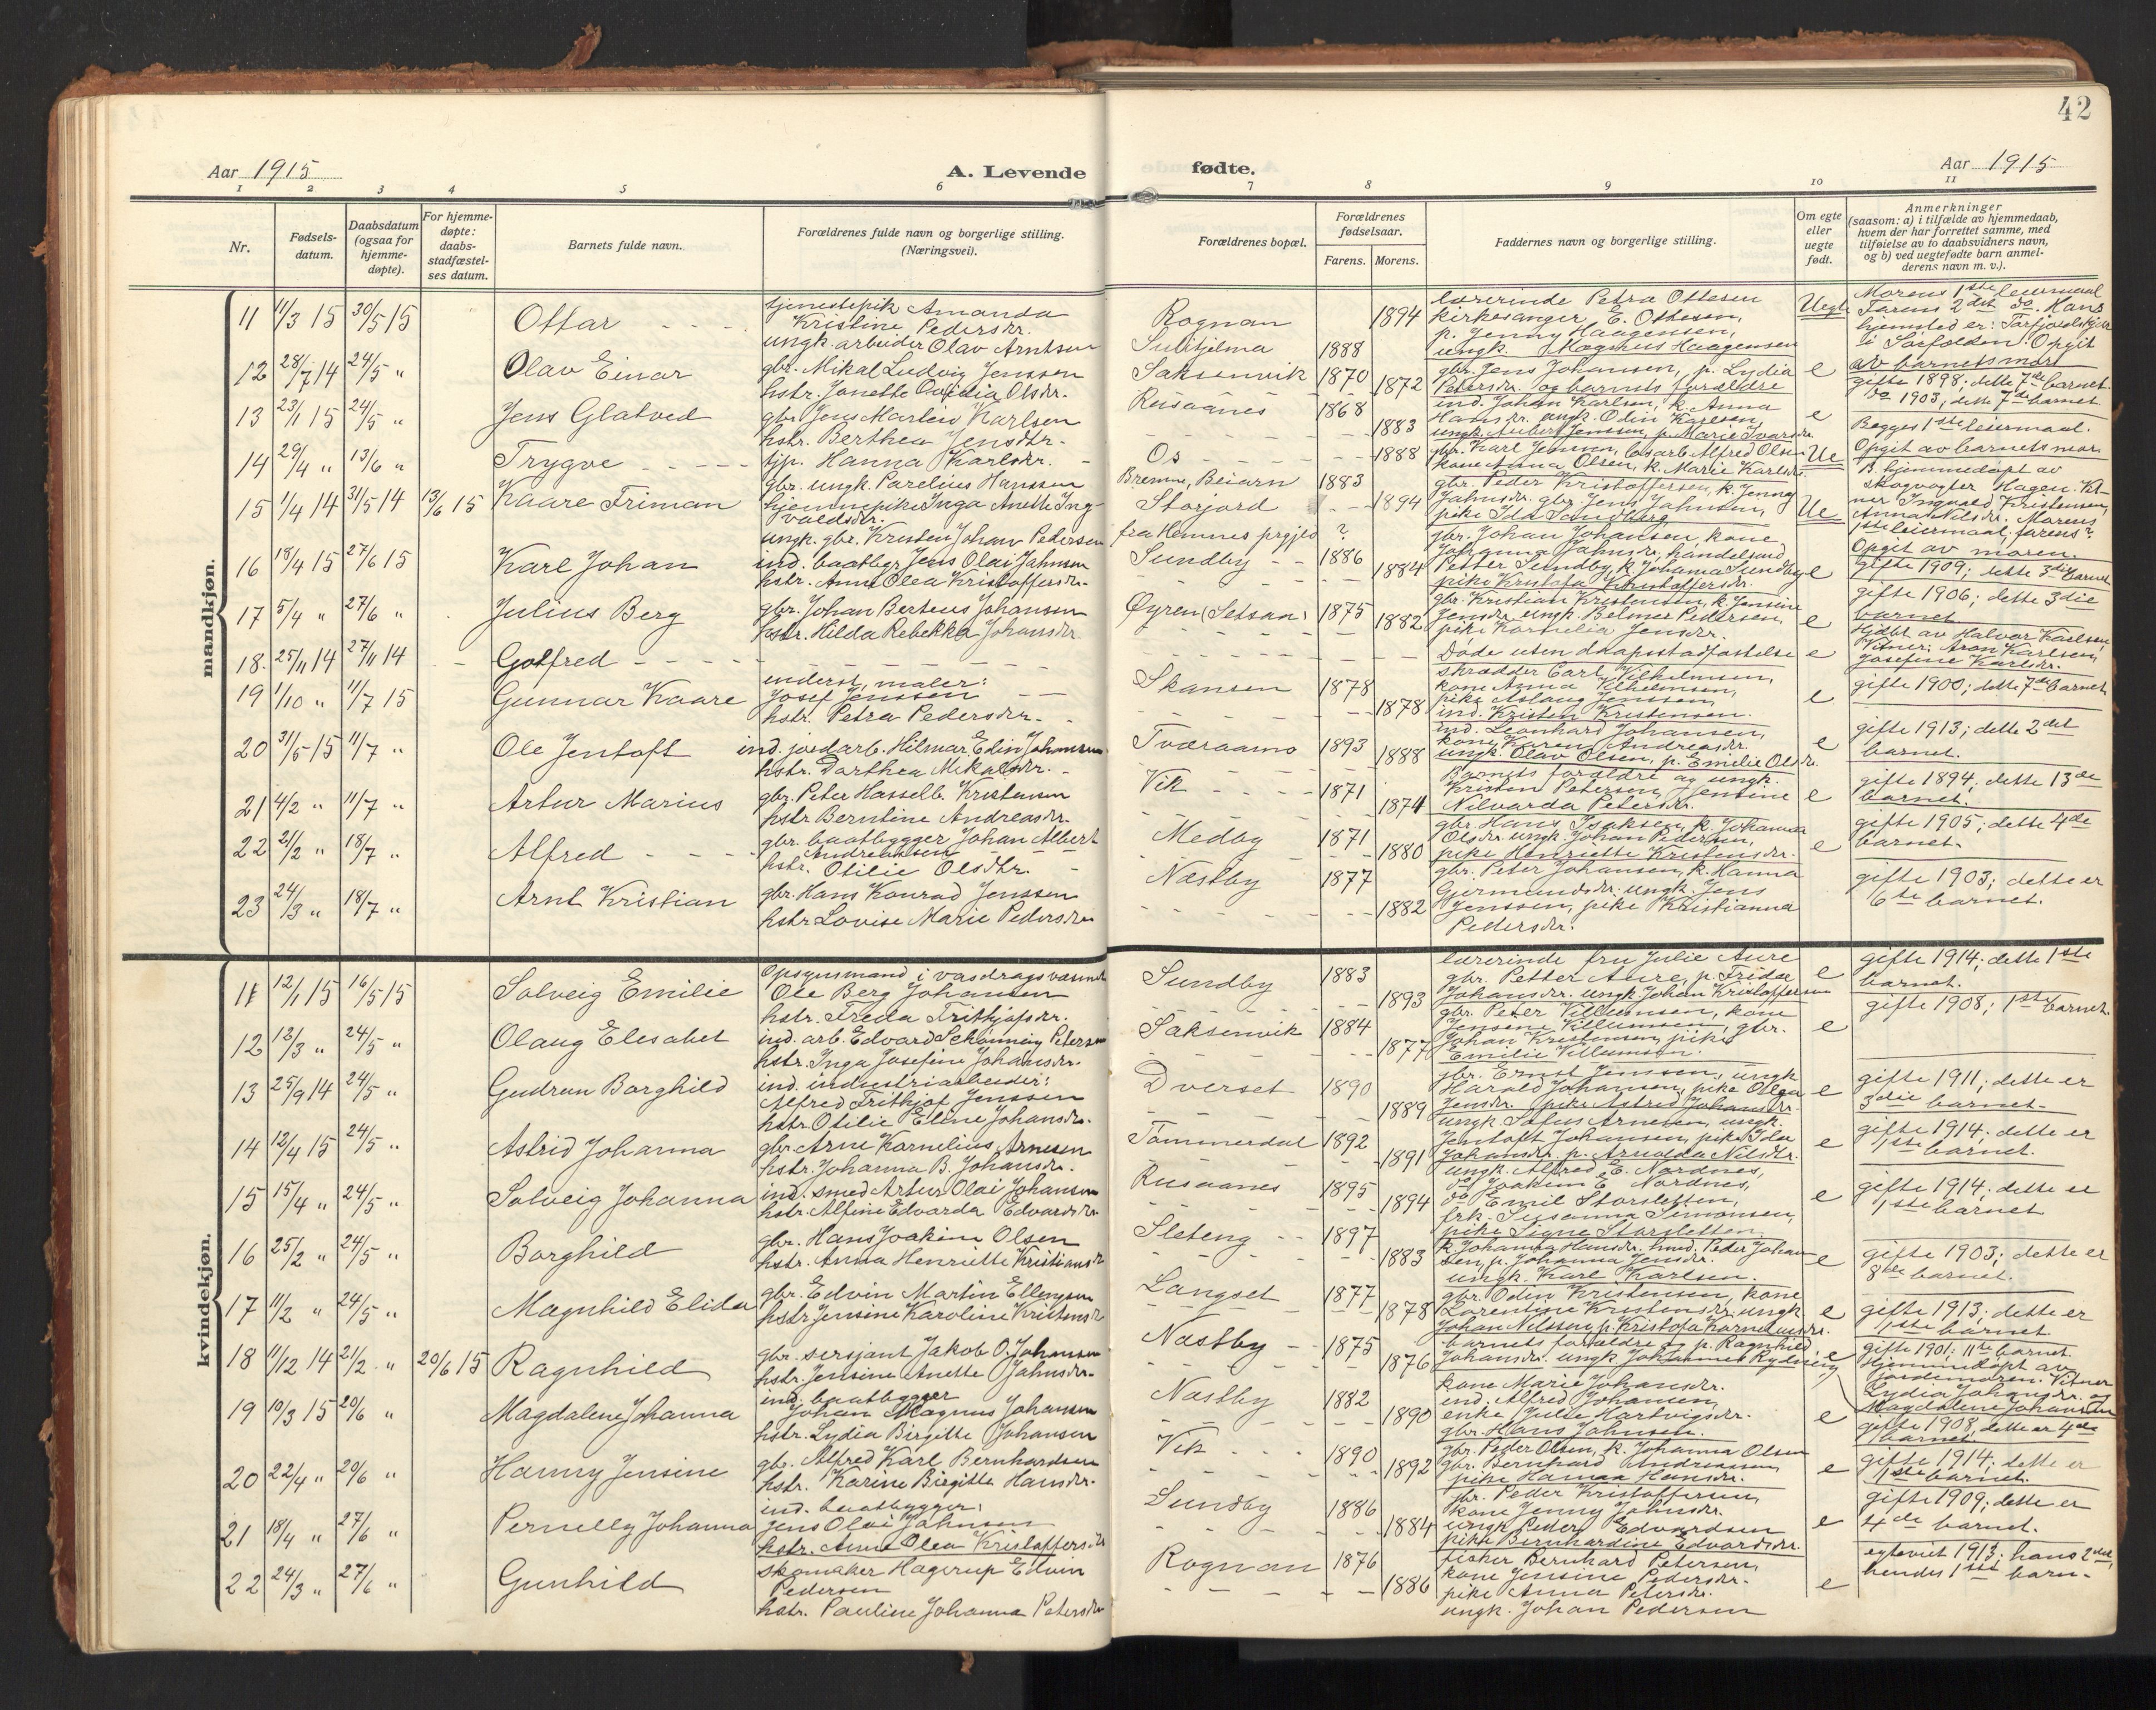 42
Aar 1915
A. Levende fødte.
Aar 1915
1 2 3 4 5 6 7 8 9 10 11
Nr.
Fødsels-
datum.
Daabsdatum
(ogsaa for
hjemme-
døpte).
For hjemme-
døpte:
daabs-
stadfæstel-
ses datum.
Barnets fulde navn.
Forældrenes fulde navn og borgerlige stilling.
(Næringsvei).
Forældrenes bopæl.
Forældrenes
fødselsaar.
Farens. Morens.
Faddernes navn og borgerlige stilling.
Om egte
eller
uegte
født.
Anmerkninger
(saasom: a) i tilfælde av hjemmedaab,
hvem der har forrettet samme, med
tilføielse av to daabsvidners navn,
og b) ved uegtefødte barn anmel-
derens navn m. v.).
mandkjøn.
11 11/3 15 30/5 15 Ottar
tjenestepik Amanda
Kristine Pedersdr.
ungk. arbeider Olav Arntsen
Rognan 1894
Sulitjelma 1888
lærerinde Petra Ottesen
kirkesanger E. Ottesen,
p. Jenny Haagensen,
ungk. Magnus Haagensen
Uegte
Morens 1ste leiermaal
Farens 2det do. Hans
hjemsted er: Torfjordskjær
i Sørfolden. Opgit
av barnets mor
12 28/7 14 24/5 " Olav Einar
gbr. Mikal Ludvig Jenssen
hstr. Jonette Ovidia Olsdr.
Saksenvik 1870 1872
gbr. Jens Johansen, p. Lydia
Petersdr. og barnets forældre
e
gifte 1898; dette 7de barnet.
13 23/1 15 24/5 " Jens Glatved
gbr. Jens Martin Karlsen
hstr. Berthea Jensdtr.
Rusaanes 1868 1883
ind. Johan Karlsen, k. Anna
Hansdr. ungk. Odin Karlsen,
ungk. Anbert Jenssen, p. Marie Ivarsdr.
e
do 1903; dette 7de barnet.
14 29/4 " 13/6 " Trygve
tjp. Hanna Karlsdr.
gbr. ungk. Parelius Hanssen
Os 1888
Breime, Beiarn 1883
gbr. Karl Jensen, Cosarb. Alfred Olsen
kone Anna Olsen, k. Marie Karlsdr.
Ue
Begges 1ste leiermaal.
Opgit av barnets mor
15 1/4 14 31/5 14 13/6 15 Kaare Friman
hjemmepike Inga Anette Ing-
valdsdr.
ungk. gbr. Kristen Johan Pedersen
Storjord 1894
fra Hemnes prgjeld ?
gbr. Peder Kristoffersen, k. Jenny
Jahnsdr. gbr. Jens Jahnsen,
pike Ida Sandberg
Ue
B. hjemmedøpt av
skogvogter Hagen. Vit-
ner Ingvald Kristensen,
Anna Nilsdr. Morens
1ste leiermaal, farens?
Opgit av moren.
16 18/4 15 27/6 15 Karl Johan
ind. baatbgr. Jens Olai Jahnsen
hstr. Anne Olea Kristoffersdr.
Sundby 1886 1884
gbr. Johan Johansen, kone
Johanna Jahnsdr., handelsmd.
Petter Sundby, k. Johanna Sundby
pike Kristofa Kristoffersdr.
e
gifte 1909; dette 3die barnet
17 5/4 " 27/6 " Julius Berg
gbr. Johan Berteus Johansen
hstr. Hilda Rebekka Johansdr.
Øyren (Setsaa) 1875 1882
gbr. Kristian Kristensen, k. Jensine
Jensdr. ungk. Belmer Pedersen,
pike Kornelia Jensdr.
e
gifte 1906; dette 3die
barnet
18. 25/11 14 27/11 14 Gotfred
Døde uten daapsstadfæstelse e
Hjdbt av Halvor Karlsen,
Vitner: Aron Karlsen,
Josefine Karlsdr.
19 1/10 " 11/7 15 Gunnar Kaare
inderst, maler:
Josef Jenssen
hstr. Petra Pedersdr.
Skansen 1878 1878
skrædder Carl Vilhelmsen,
kone Anna Vilhelmsen,
pike Aslaug Jonssen,
ind. Kristen Kristensen.
e
gifte 1900; dette 7de barnet
20 31/5 15 11/7 " Ole Jentoft
ind. jordarb. Hilmar Edin Johansen
hstr. Dorthea Mikalsdr.
Tværaamo 1893 1888
ind. Leonhard Johansen,
kone Karen Andreasdr.
ungk. Olav Olsen, p. Emilie Olsdr.
e
gifte 1913; dette 2det
barnet.
21 4/2 " 11/7 " Artur Marius
gbr. Peter Hasselb. Kristensen
hstr Berntine Andreasdr.
Vik 1871 1874
Barnets forældre og ungk.
Kristen Petersen, Jensine
Nilvarda Petersdr.
e
gifte 1894; dette 13de
barnet.
22 21/2 " 18/7 " Alfred
gbr. baatbygger Johan Albert
Andreassen
hstr. Otilie Olsdtr.
Medby 1871 1880
gbr. Hans Isaksen, k. Johanna
Olsdr. ungk. Johan Pedersen,
pike Henriette Kristensdr.
e
gifte 1905; dette 4de
barnet.
23 24/3 " 18/7 " Arnt Kristian
gbr. Hans Konrad Jenssen
hstr Lovise Marie Pedersdr.
Næstby 1877 1882
gbr. Peter Johansen, k. Hanna
Gurmundsdr. ungk. Jens
Jenssen, pike Kristianna
Pedersdr.
gifte 1903; dette er
6te barnet.
kvindekjøn.
11 12/1 15 16/5 15 Solveig Emilie
Opsynsmand i vasdragsvæsenet
Ole Berg Johansen
hstr. Freda Fritkjofsdr.
Sundby 1883 1893
lærerinde fru Julie Aure
gbr. Petter Aure, p. Frida
Johansdr. ungk. Johan Kristoffersen
e
gifte 1914; dette 1ste
barnet.
12 12/3 " 24/5 " Olaug Elesabet
ind. arb. Edvard Schønning Petersen
hstr. Inga Josefine Johansdr.
Saksenvik 1884 1877
gbr. Peter Villumsen, kone
Jensine Villumsen, gbr.
Johan Kristensen, pike
Emilie Villumsen.
e
gifte 1908; 1ste barnet.
13 25/9 14 24/5 " Gudrun Borghild
ind. industriarbeider:
Alfred Fritkjof Jenssen
hstr. Otilie Eline Johansdr.
Dverset 1890 1889
gbr. Ernst Jenssen, ungk
Harald Johansen, pike Olga
Jensdr. pike Astrid Johansdr.
e
gifte 1911; dette er
3die barnet.
14 12/4 15 24/5 " Astrid Johanna
gbr. Arne Kornelius Arnesen
hstr. Johanna B. Johansdr.
Tømmerdal 1892 1891
ungk. Sofus Arnesen, ungk.
Jentoft Johansen, pike Ida
Johansdr. p. Arnolda Nilsdtr.
e
gifte 1914; dette er
1ste barnet.
15 15/4 " 24/5 " Solveig Johanna
ind. smed Artur Olai Johansen
hstr. Alfine Edvarda Edvardsdr.
Rusaanes 1895 1894
ungk. Alfred E. Nordnes,
do Joakim E. Nordnes,
do Emil Storsletten,
frk. Susanna Simonsen,
pike Signe Storsletten.
e
gifte 1914; dette er
1ste barnet
16 25/2 " 24/5 " Borghild
gbr. Hans Joakim Olsen
hstr. Anna Henriette Kristiansdr
Sleteng 1897 1883
k. Johanna Hansdr. smed. Peder Johan
sen, p. Johanna Jensdr.
ungk. Karl Karlsen.
e
gifte 1903; dette er
8de barnet.
17 11/2 " 24/5 " Magnhild Elida
gbr. Edvin Martin Ellingsen
hstr Jensine Karoline Kristensdr
Langset 1877 1878
gbr. Odin Kristensen, kone
Lorentine Kristensdr, ungk
Johan Nilssen, p. Kristofa Korneliusdr.
e
gifte 1913; dette er
1ste barnet
18 11/12 14 21/2 " 20/6 15 Ragnhild
gbr. sersjant Jakob O. Johansen
hstr. Jensine Anette Jahnsdr.
Næstby 1875 1876
barnets forældre og p. Ragnhild
Johansdr. ungk. Johannes Rydning
e
gifte 1901; 11te barnet.
Hjemmedøpt av
jordemoren. Vitner
Lydia Johansdr. og
Magdalene Johansen
19 10/3 15 20/6 " Magdalene Johanna
ind. baatbygger
Johan Magnus Johansen
hstr. Lydia Birgitte Johansen
Næstby 1882 1890
kone Marie Johansdr.
ind. Alfred Johansen,
enke Julie Hartvigsdr.
gbr. Hans Johnsen.
e
gifte 1908, dette er 4de
barnet
20 22/4 " 20/6 " Hanny Jensine
gbr. Alfred Karl Bernhardsen
hstr. Karine Birgitte Hansdr.
Vik 1890 1892
gbr. Peder Olsen, k. Johanna Olsen
gbr. Bernhard Andreassen,
pike Hanna Hansdr.
e
gifte 1914; dette er
1ste barnet.
21 18/4 " 27/6 " Pernelly Johanna
ind. baatbygger:
Jens Olai Jahnsen
hstr. Anne Olea Kristoffersdr
Sundby 1886 1884
gbr. Peder Kristoffersen,
kone Jenny Jahnsdr.
ungk. Peder Edvardsen
pike Bernhardine Edvardsdr.
e
gifte 1909; dette er
4de barnet.
22 24/3 " 27/6 " Gunhild
skomaker Hagerup Edvin
Pedersen
hstr. Pauline Johanna Petersdr
Rognan 1876 1886
fisker Bernhard Petersen,
kone Jensine Pedersdr.
pike Anna Petersdr.
ungk. Johan Pedersen
e
egteviet 1913; hans 2det,
hendes 1ste barn.